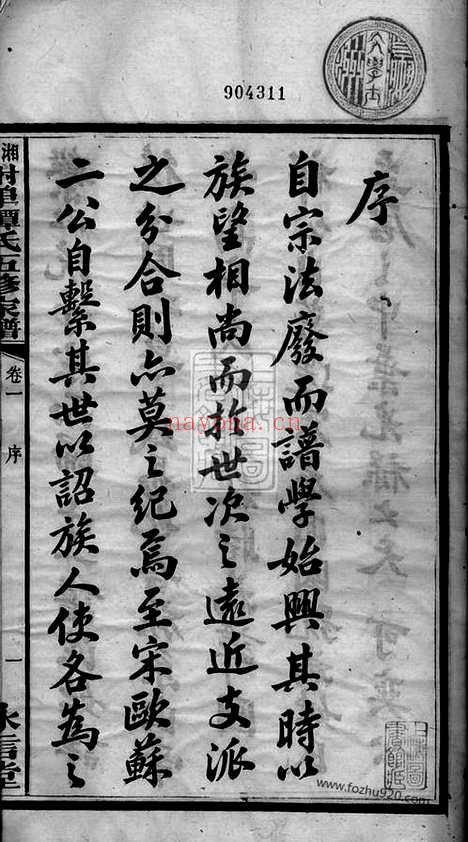 904311
序
自宗法廢而譜學始興其時以
族望相尚而於世次之遠近支派
之分合則亦莫之紀焉至宋歐蘇
二公自繫其世以詔族人使各為之
湘 譚氏五修家譜
卷一
序
一
永言堂
nayona.cn
www.fozhu920.com